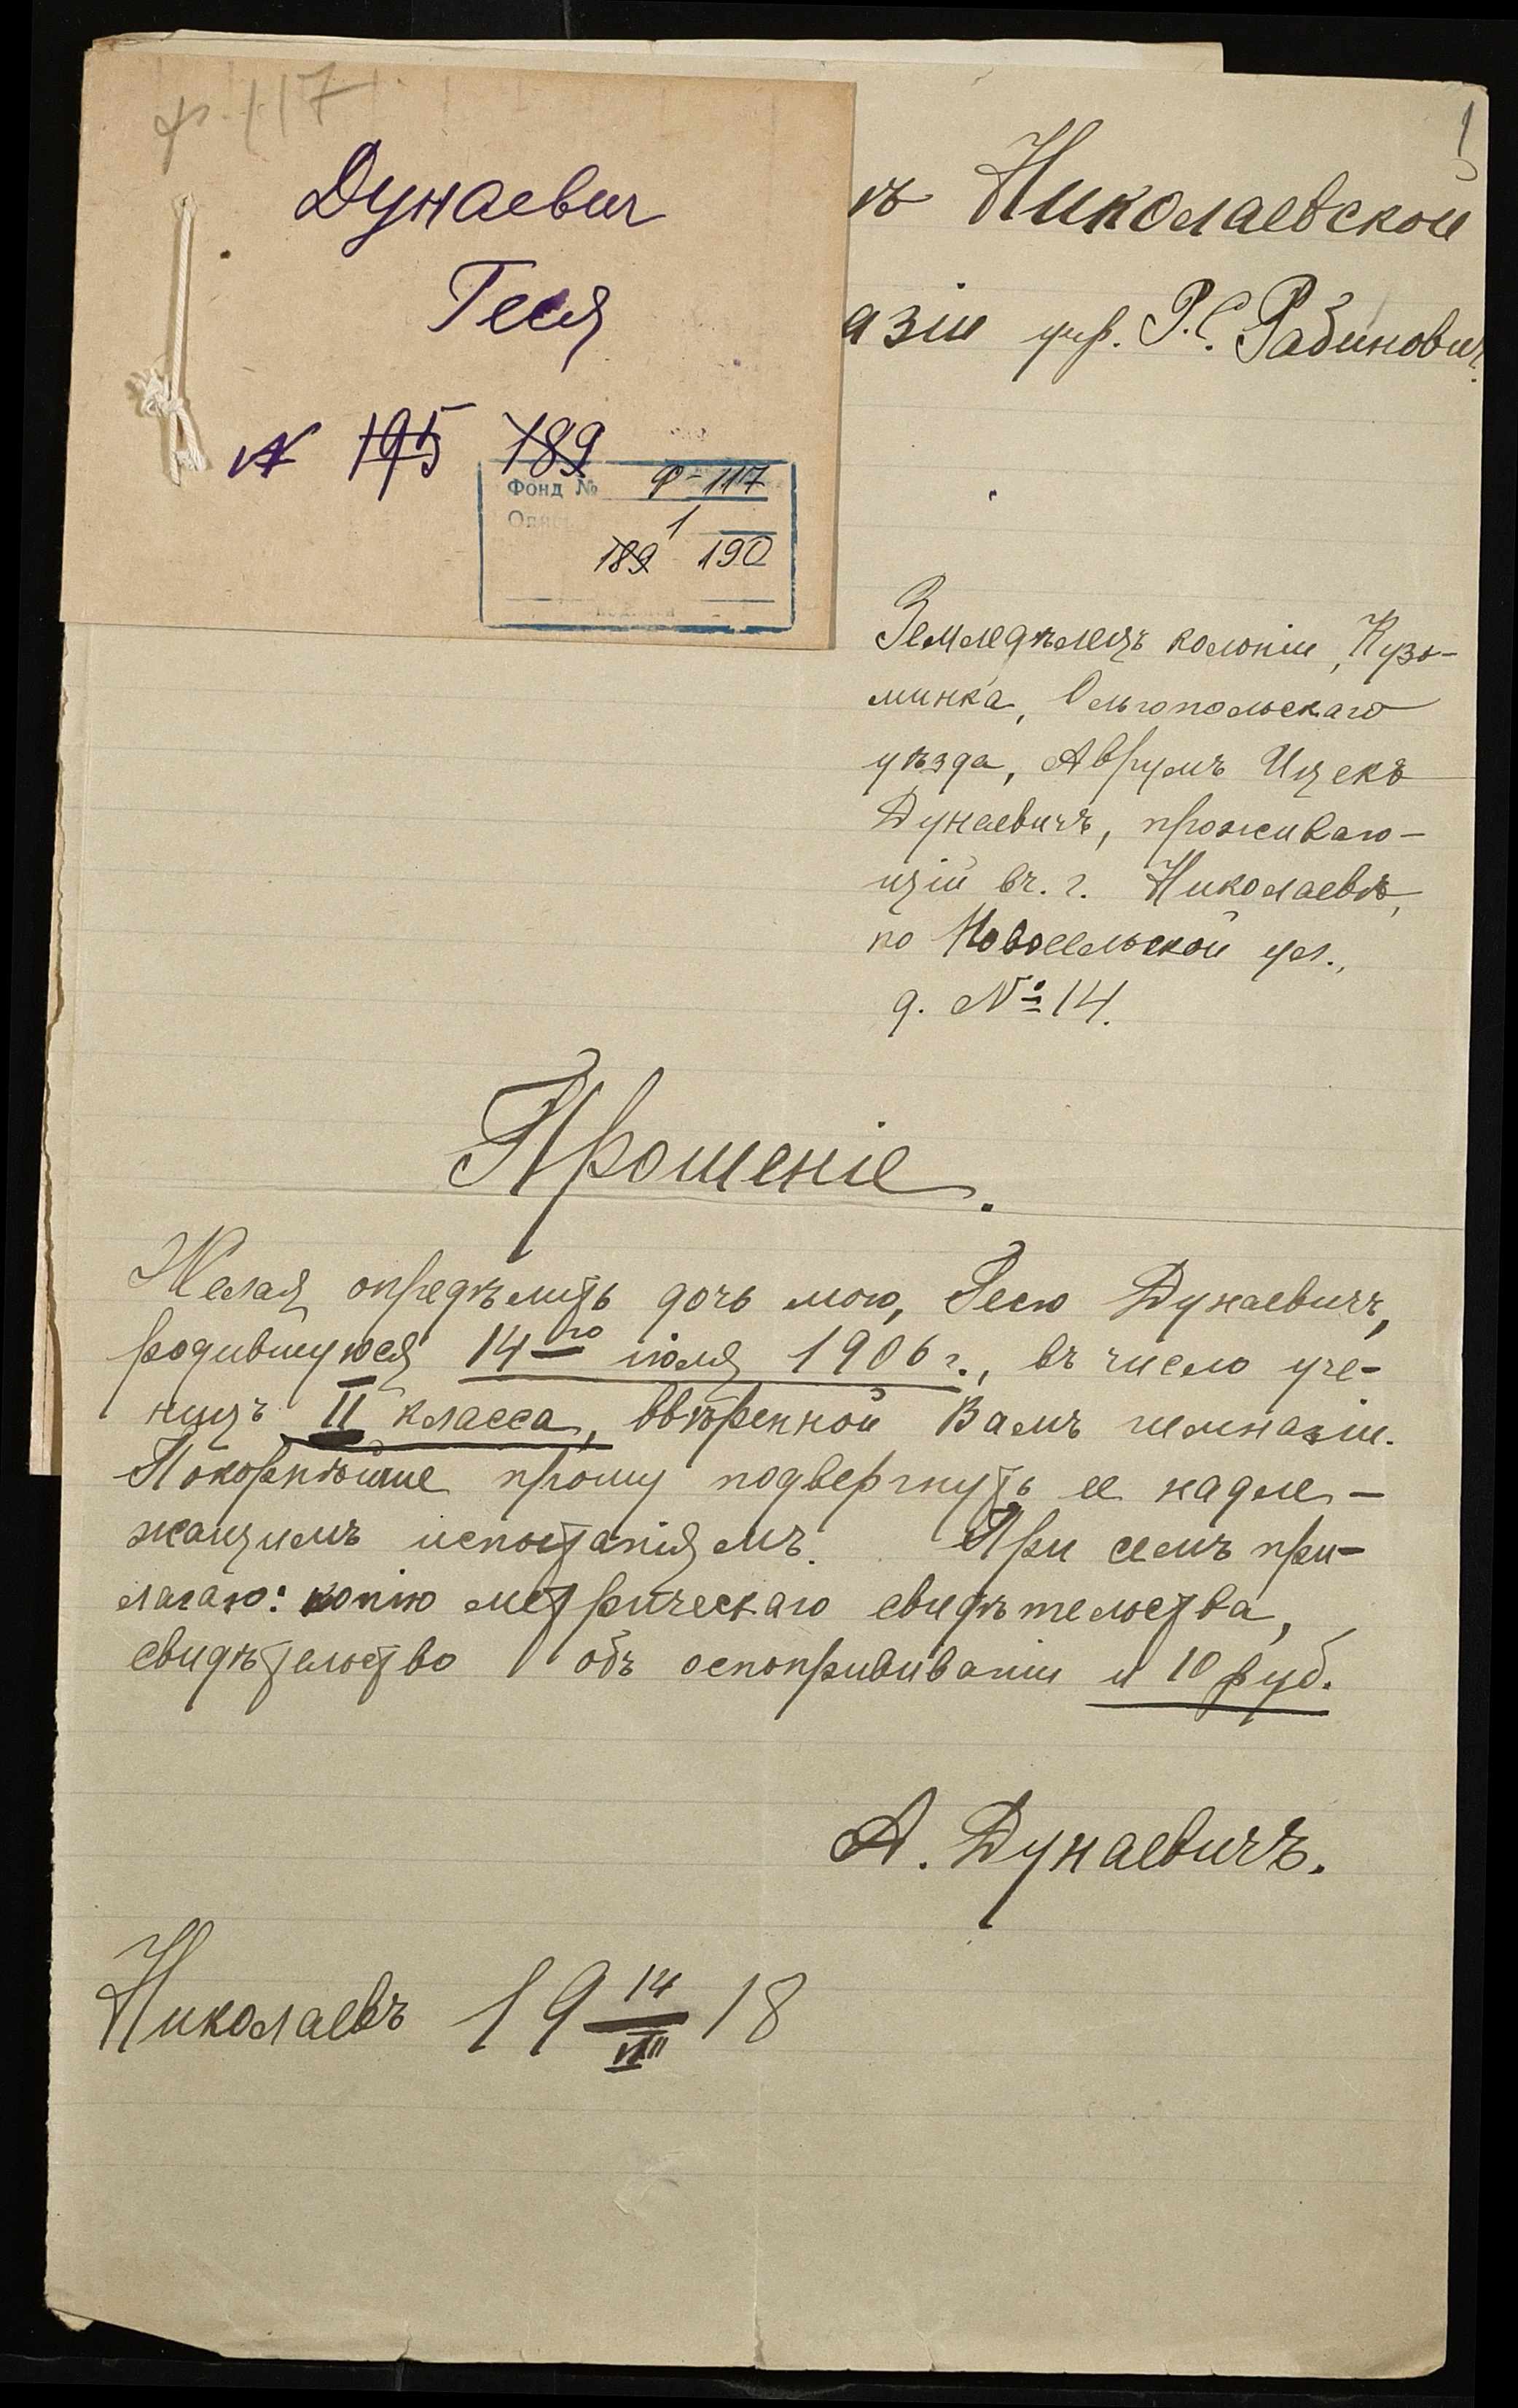 ф. 117
Дунаевич
Геся
N 195 189
Фонд № Ф-117
Опись 1
189 190
1
ѣ Николаевской
азіи учр. Р. С. Рабинович.
Земледѣлецъ колоніи, Кузь-
минка, Ольгопольскаго
уѣзда, Аврумъ Ицекъ
Дунаевичъ, проживаю-
щій въ. г. Николаевѣ,
по Новосельской ул.,
д. № 14.
Прошеніе.
Желая опредѣлить дочь мою, Гесю Дунаевичъ,
родившуюся 14-го іюля 1906 г., въ число уче-
ницъ II класса, ввѣренной Вамъ гимназіи.
Покорнѣйше прошу подвергнуть ее надле-
жащимъ испытаніямъ. При семъ при-
лагаю: копію метрическаго свидѣтельства,
свидѣтельство объ оспопрививаніи и 10 руб.
А. Дунаевичъ.
Николаевъ 19 14/VIII 18